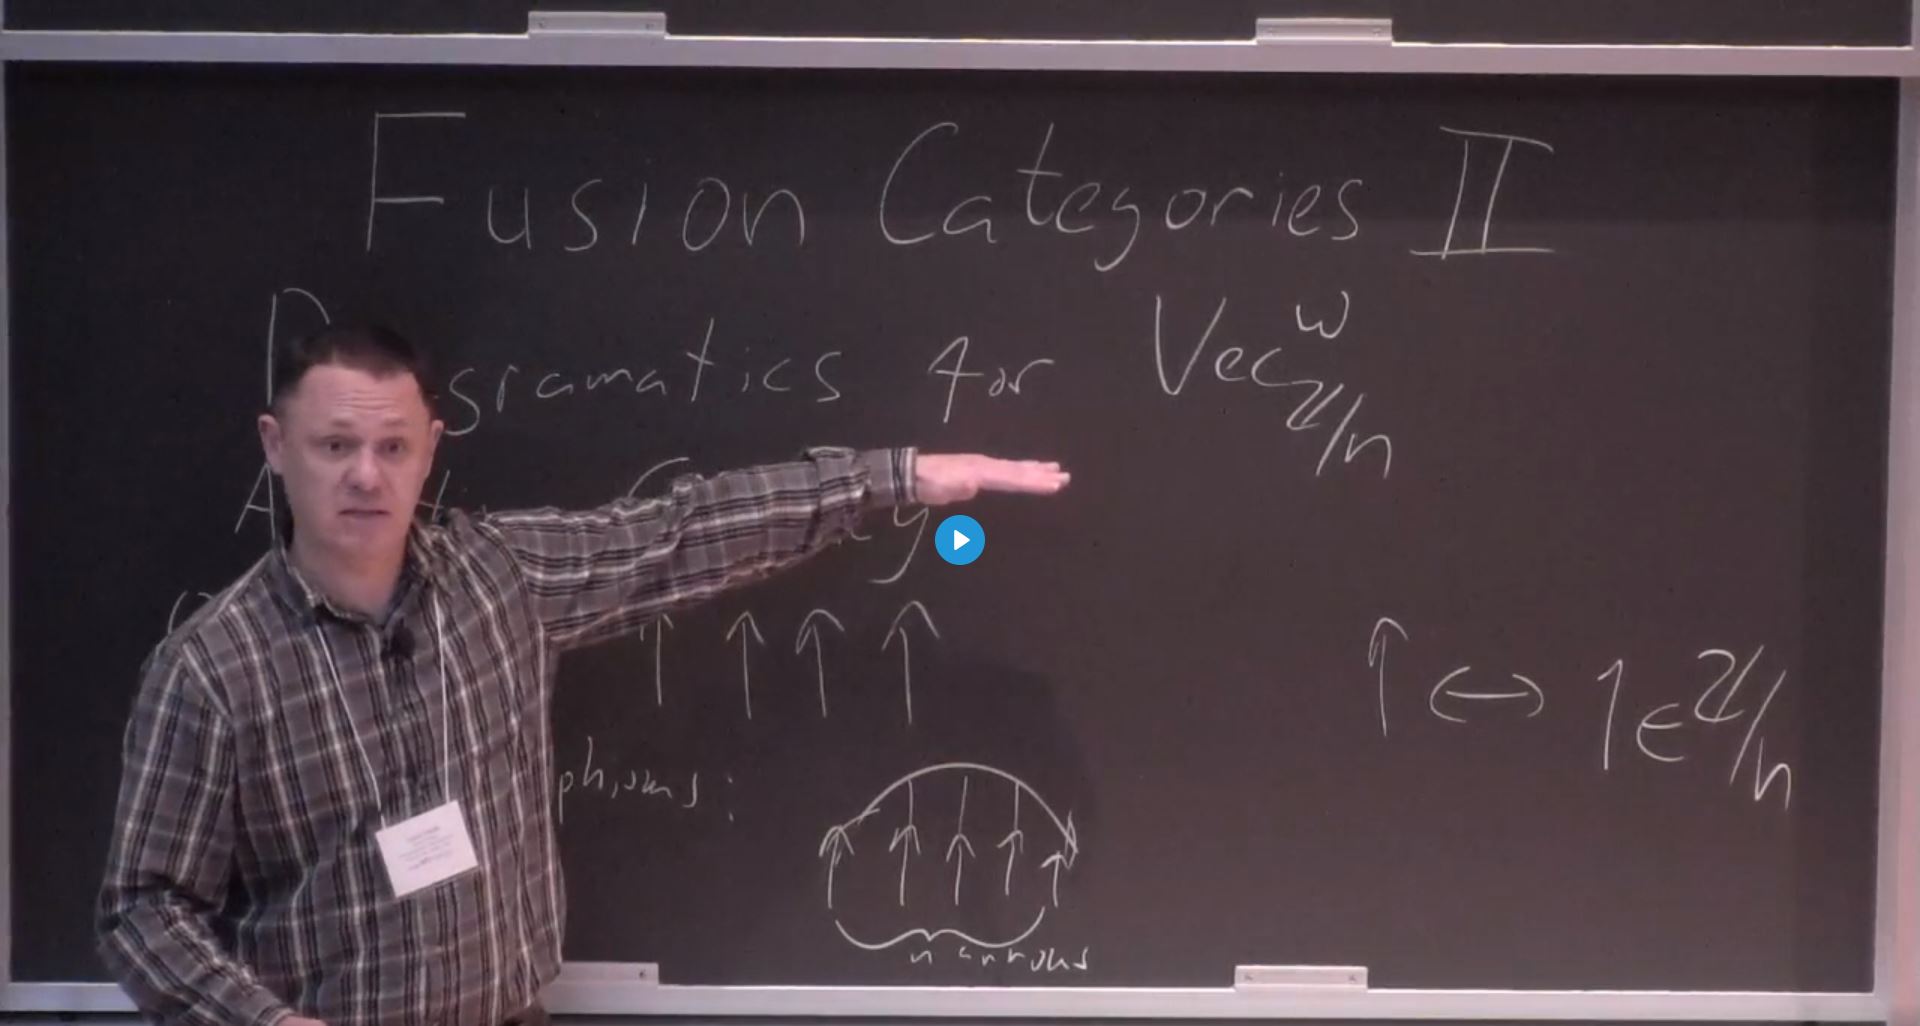 Fusion Categories II
gramatics for Vec^ω_ℤ/n
↑ ↑ ↑ ↑
↑ ↔ 1 ∈ ℤ/n
phisms:
n arrows